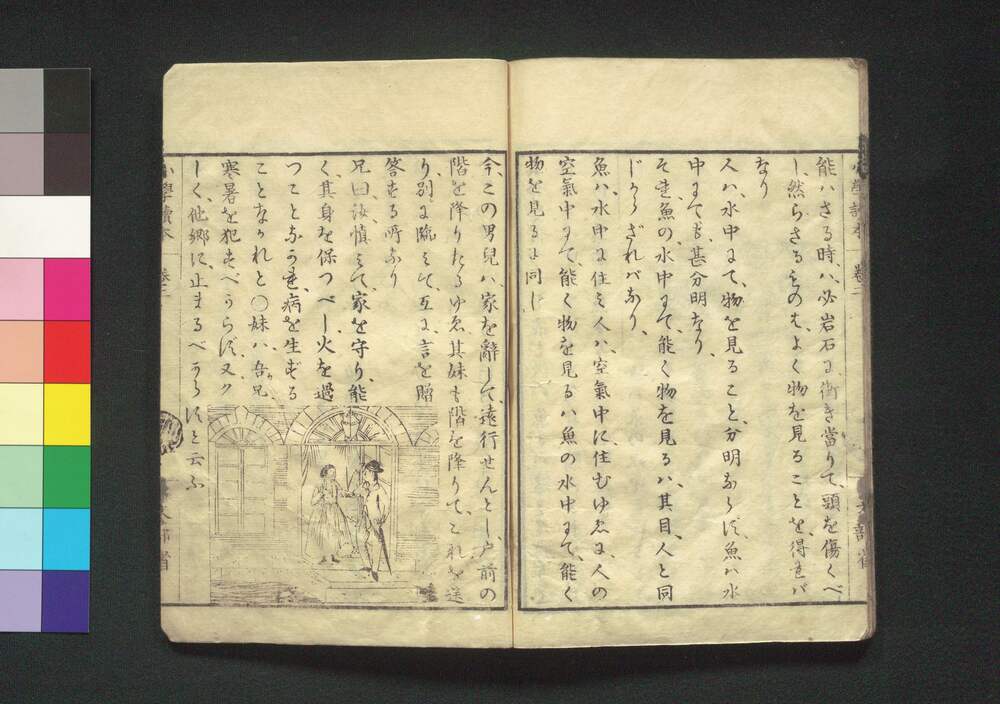 小學讀本 卷二 文部省
能ハざる時ハ必岩石に衝き當りて頭を傷くべ
し、然らざるものは、よく物を見ることを、得れバ
なり
人ハ、水中にて、物を見ること、分明ならず魚ハ水
中にても、甚分明なり、
それ魚の、水中にて、能く物を見るハ、其目、人と同
じからざれバなり、
魚ハ、水中に住ミ人ハ、空氣中に、住むゆゑに、人の
空氣中にて、能く物を見るハ魚の水中にて、能く
物を見るに同じ
今、この男兒ハ、家を辭して、遠行せんとし、戸前の
階を降りたるゆゑ、其妹も階を降りて、これを送
り、別に臨ミて、互に、言を贈
答する所なり
兄曰、汝愼ミて、家を守り、能
く、其身を保つべし火を過
つことなかれ、病を生ずる
ことなかれと〇妹ハ吾兄
寒暑を犯すべからず、又久
しく、他郷に、止まるべからずと云ふ
小學讀本 卷二 文部省